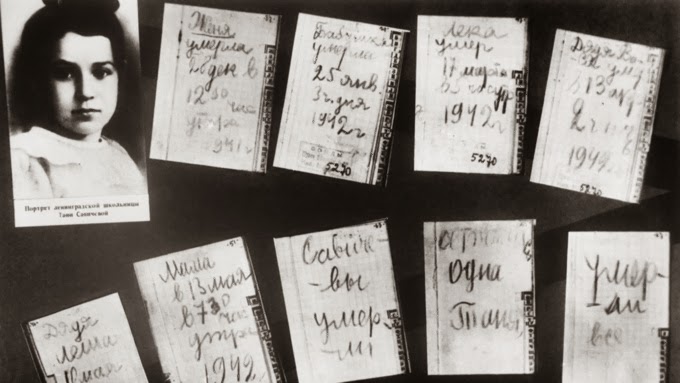 Портрет ленинградской школьницы
Тани Савичевой
Женя
умерла
28 дек в
12 30 час
утра
1941 г
Бабушка
умерла
25 янв.
3 ч. дня
1942 г
5270
Лека
умер
17 марта
в 5 час утр
1942 г
5270
Дядя Ва-
ся умер
в 13 апр
2 ч ночь
1942 г
Дядя
Леша
мая
Мама
в 13 мая
в 7 30
час
утра
1942
Савиче-
-вы
умер-
-ли
одна
Таня
умер-
ли
все